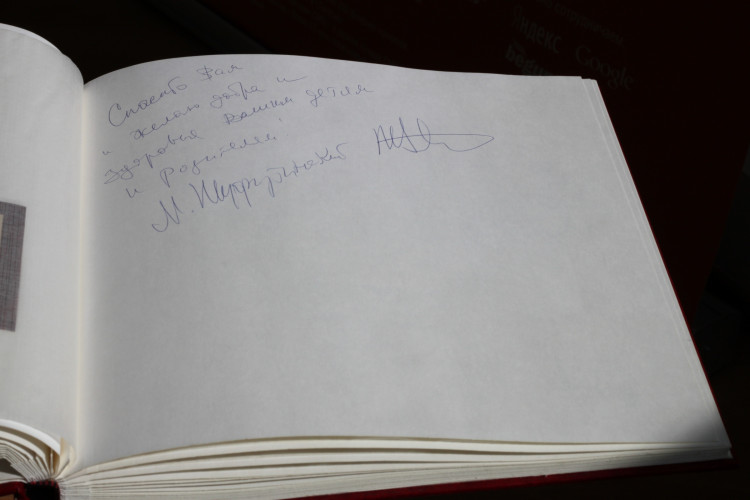 Спасибо Вам
и желаю добра и
здоровья Вашим детям
и родителям!
М.
Яндекс Google